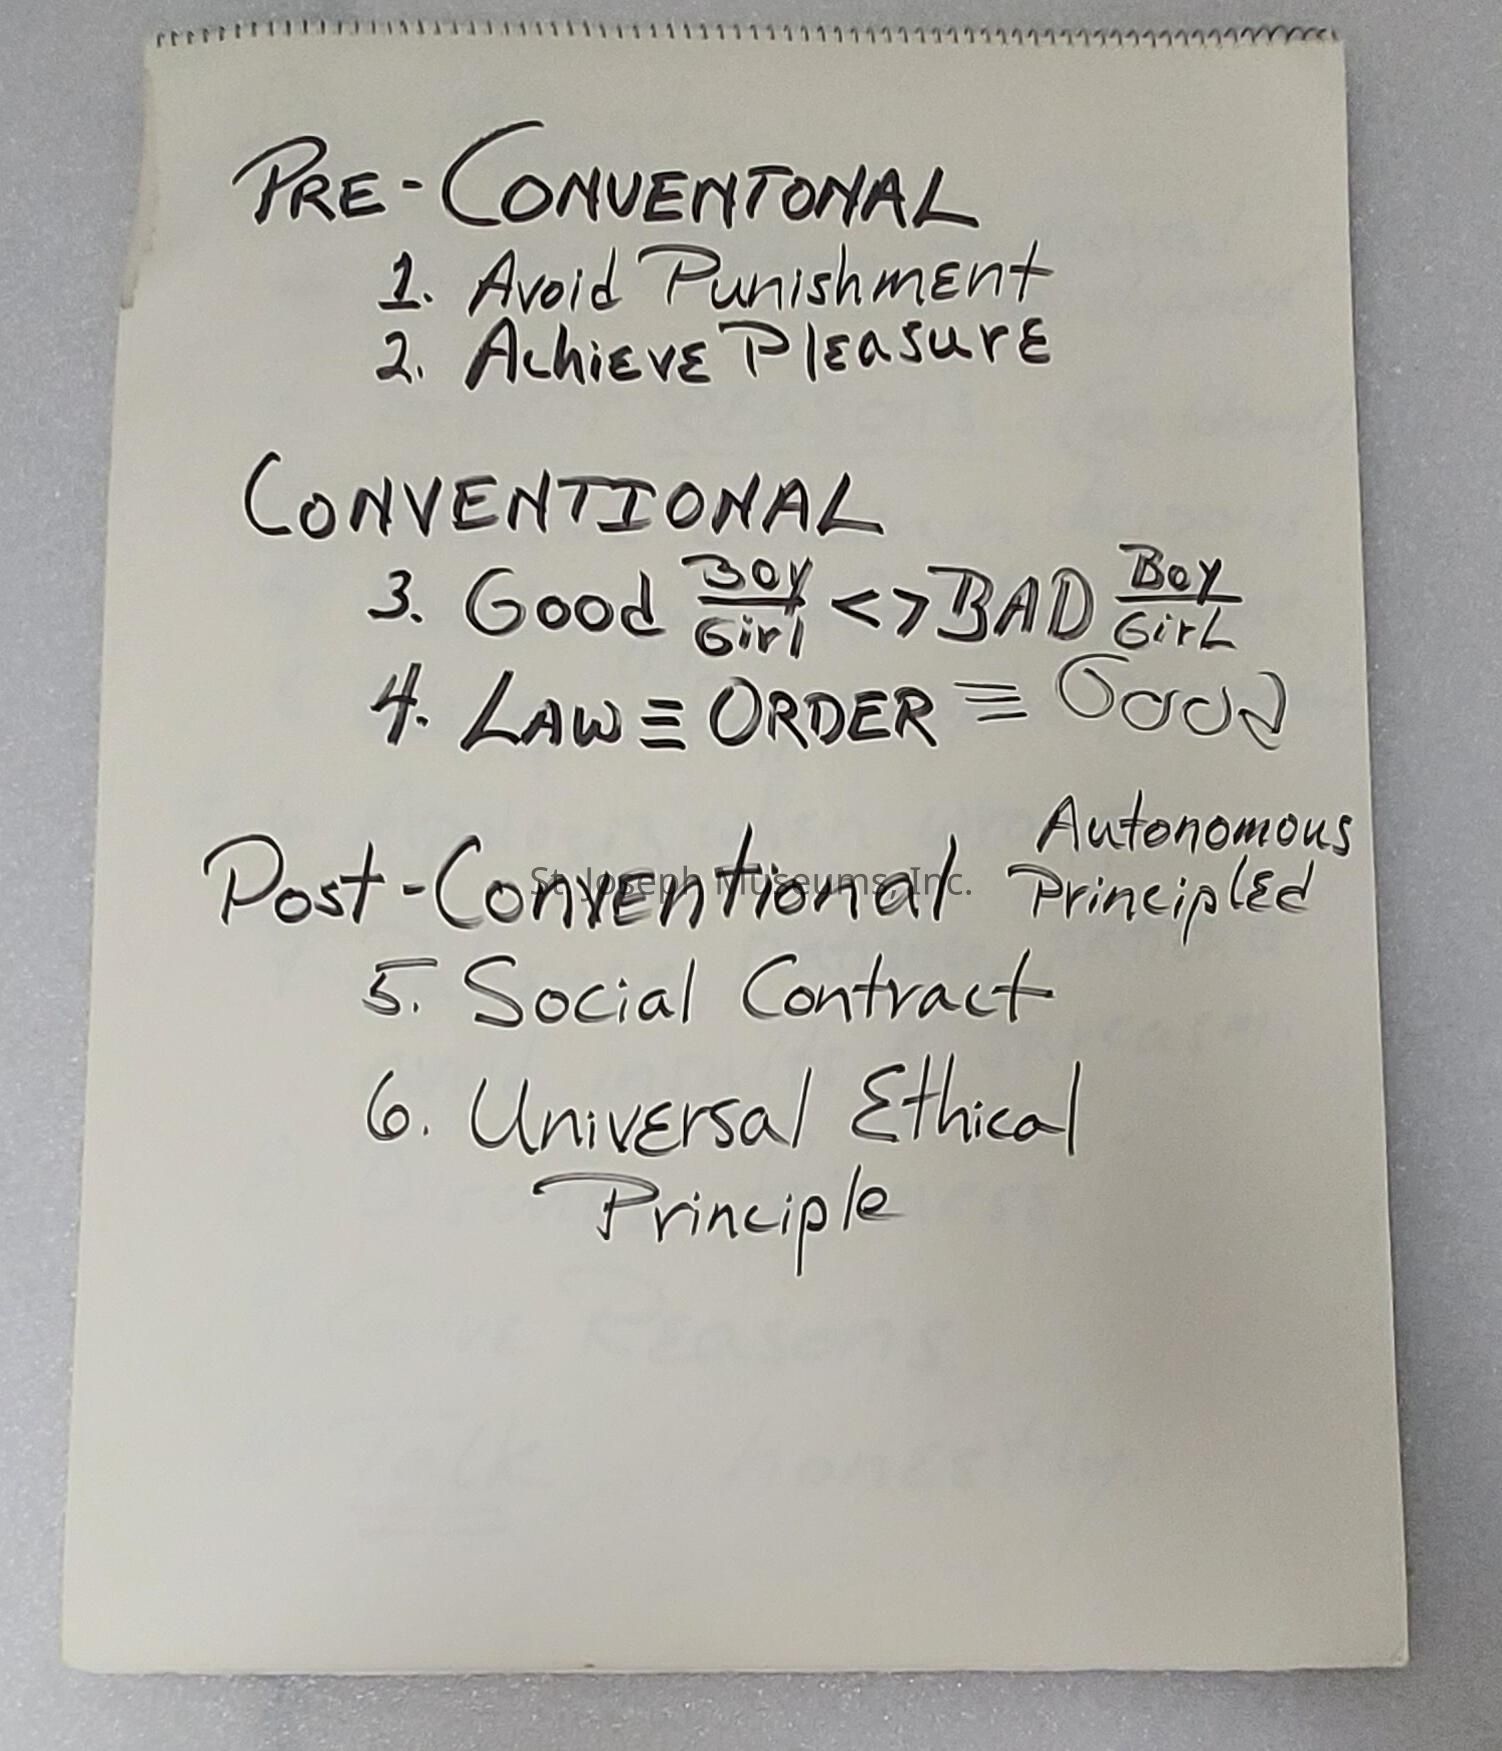 PRE-CONVENTONAL
1. Avoid Punishment
2. Achieve Pleasure
CONVENTIONAL
3. Good Boy/Girl <> BAD Boy/Girl
4. LAW ≡ ORDER ≡ Good
Post-Conventional Autonomous Principled
St. Joseph Museums, Inc.
5. Social Contract
6. Universal Ethical
Principle
Reasons
Talk honestly